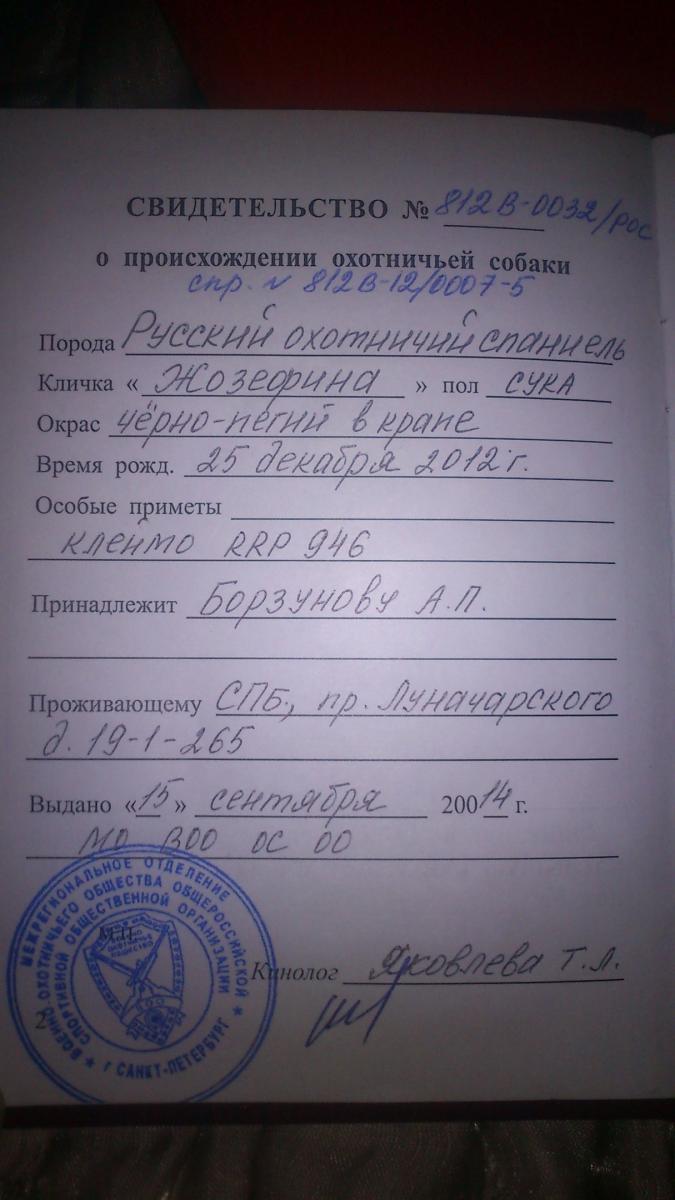 СВИДЕТЕЛЬСТВО № 812В-0032/РОС
о происхождении охотничьей собаки
спр. № 812В-12/0007-5
Порода Русский охотничий спаниель
Кличка « Жозефина » пол СУКА
Окрас чёрно-пегий в крапе
Время рожд. 25 декабря 2012 г.
Особые приметы
клеймо RRP 946
Принадлежит Борзунову А.П.
Проживающему СПБ., пр. Луначарского
д. 19-1-265
Выдано «15» сентября 20014 г.
МО ВОО ОС ОО
МЕЖРЕГИОНАЛЬНОЕ ОТДЕЛЕНИЕ
ВОЕННО-ОХОТНИЧЬЕГО ОБЩЕСТВА ОБЩЕРОССИЙСКОЙ
СПОРТИВНОЙ ОБЩЕСТВЕННОЙ ОРГАНИЗАЦИИ
г САНКТ-ПЕТЕРБУРГ
М.П.
Кинолог Яковлева Т.Л.
2